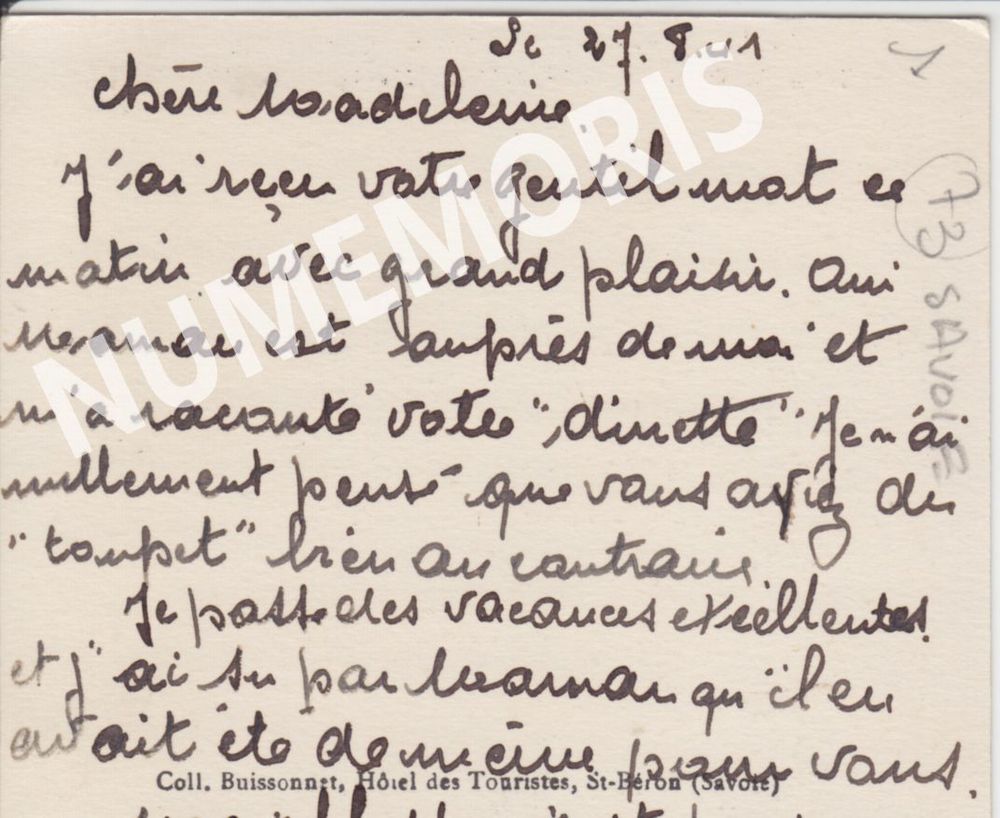 Le 27. 8.
1
Chère Madeleine
J'ai reçu votre gentil mot ce
matin avec grand plaisir. Oui
Maman est auprès de moi et
m'a raconté votre "dinette" Je n'ai
nullement pensé que vous aviez du
"toupet" bien au contraire.
Je passe des vacances excellentes
et j'ai su par Maman qu'il en
avait été de même pour vous.
Coll. Buissonnet, Hôtel des Touristes, St-Béron (Savoie)
(73) SAVOIE
NUMEMORIS